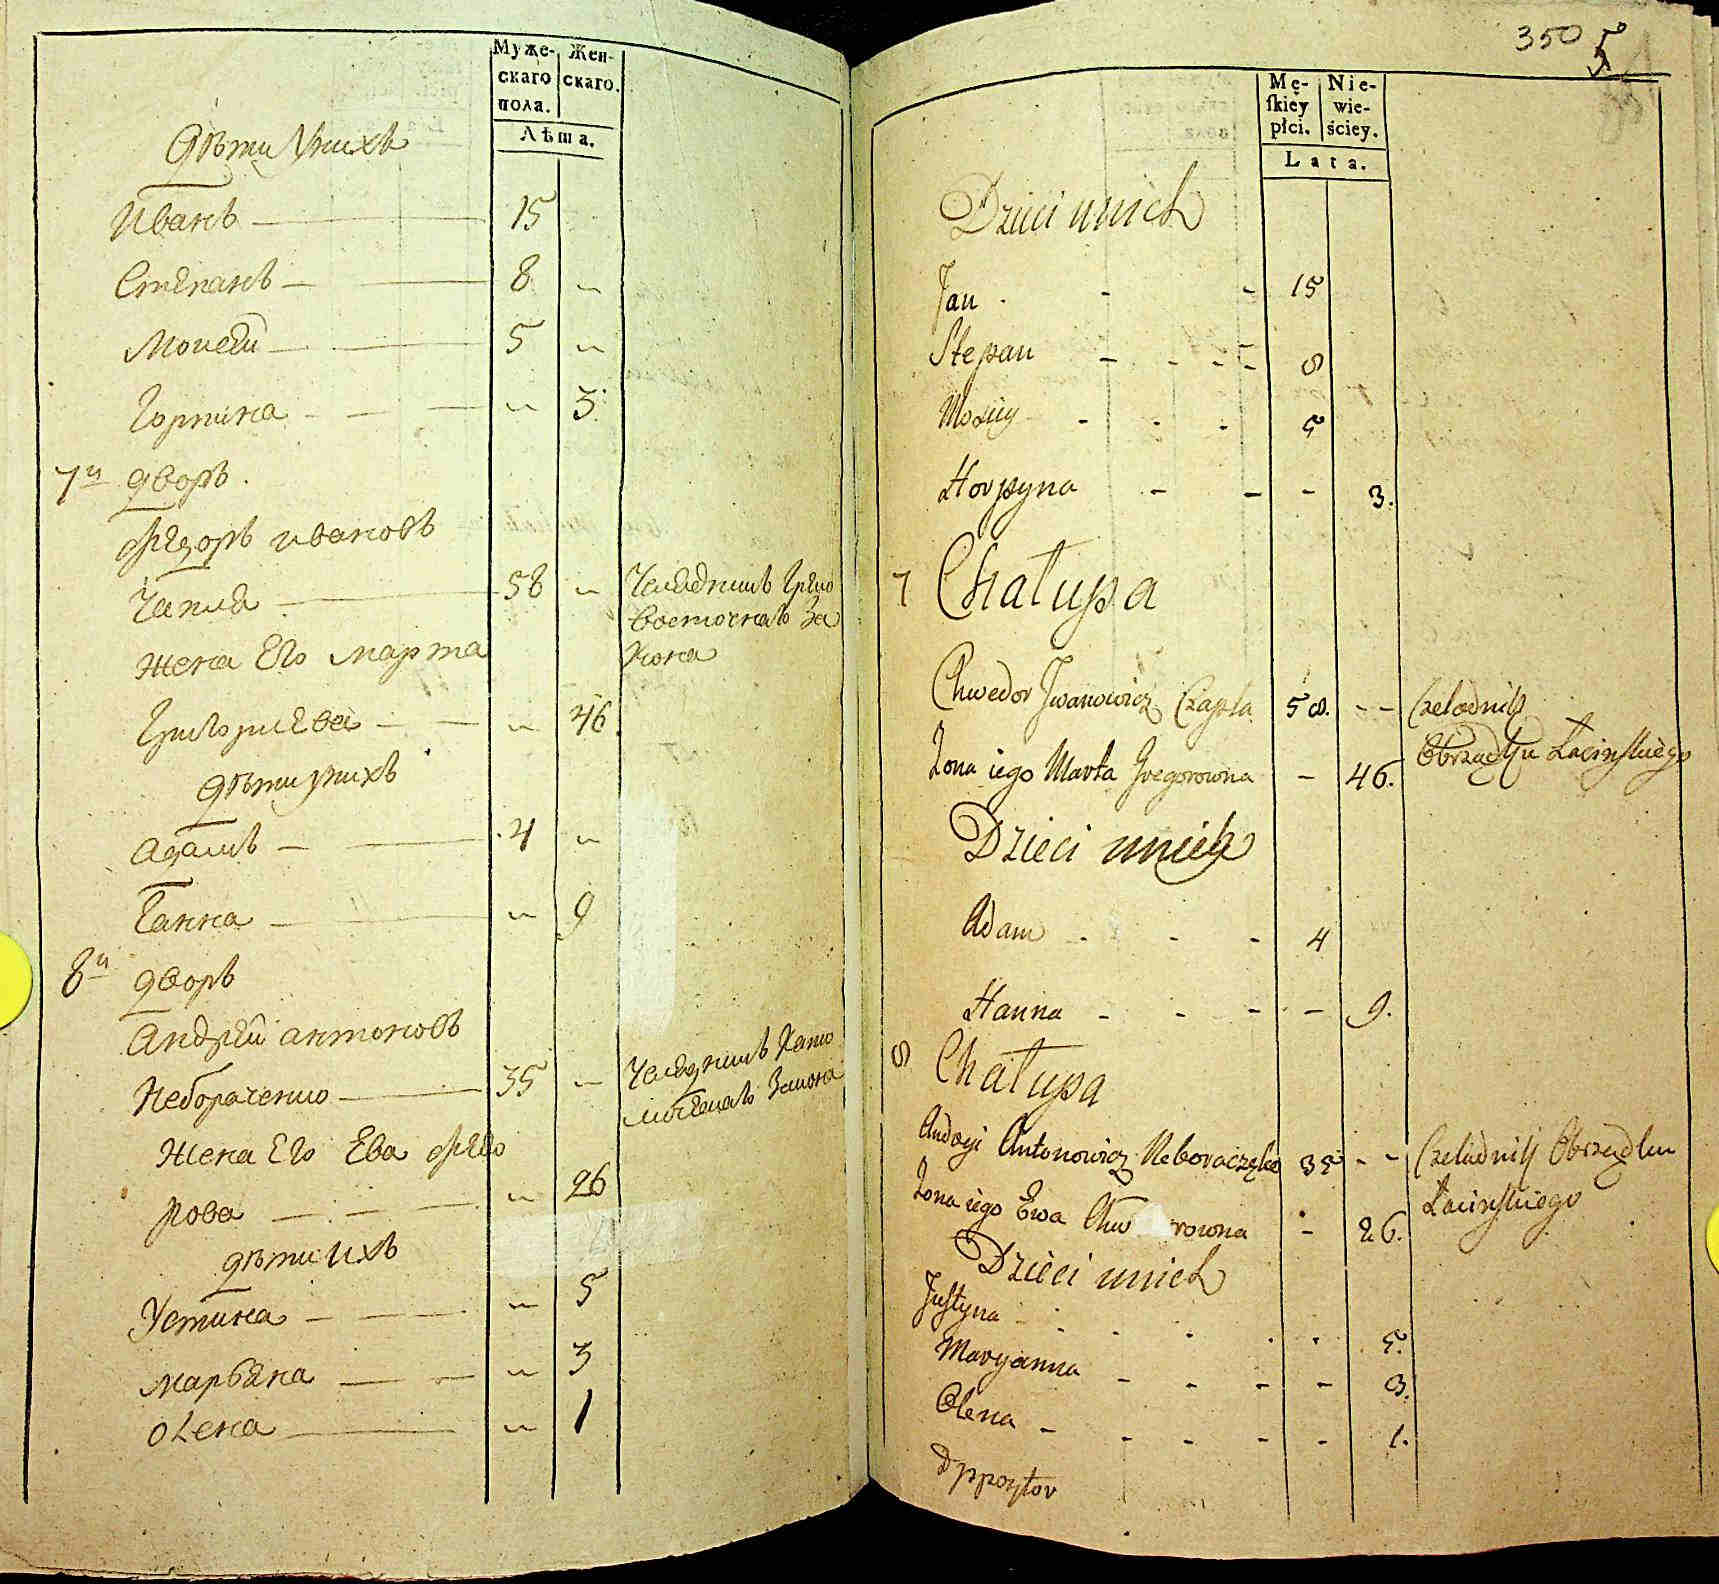 Муже-
скаго
пола.
Жен-
скаго.
Лѣта.
Дѣти У нихъ
Иванъ 15
Степанъ 8 "
Моисей 5 "
Горпина " 3
7й дворъ.
Фядоръ ивановъ
Чапля 58 "
Жена Его марта
Григориева " 46
дѣти у нихъ
Адамъ 4 "
Ганна " 9
8й дворъ
Андрей антоновъ
Небораченко 35 "
Жена Его Ева Федо
рова " 26
дѣти ихъ
Устина " 5
марьяна " 3
олена " 1
350
5
Mę-
ſkiey
płci.
Nie-
wie-
ściey.
Lata.
Dzieci unich
Jan - - 15
Stepan - - - - 8
Moziey - - - 5
Horpyna - - - 3.
7 Chałupa
Chwedor Jwanowicz Czapla 58. - - Czeladnik
Obrządku Łacinſkiego
Żona iego Marta Gregorowna - 46.
Dzieci unich
Adam - - - 4
Hanna - - - - 9.
8 Chałupa
Andrzyi Antonowicz Neboraczęko 35 - - Czeladnik Obrządku
Łacinſkiego
Żona iego Ewa Chw rowna - 26.
Dzieci unich
Juſtyna - - - - - 5.
Maryanna - - - - 3.
Olena - - - - - 1.